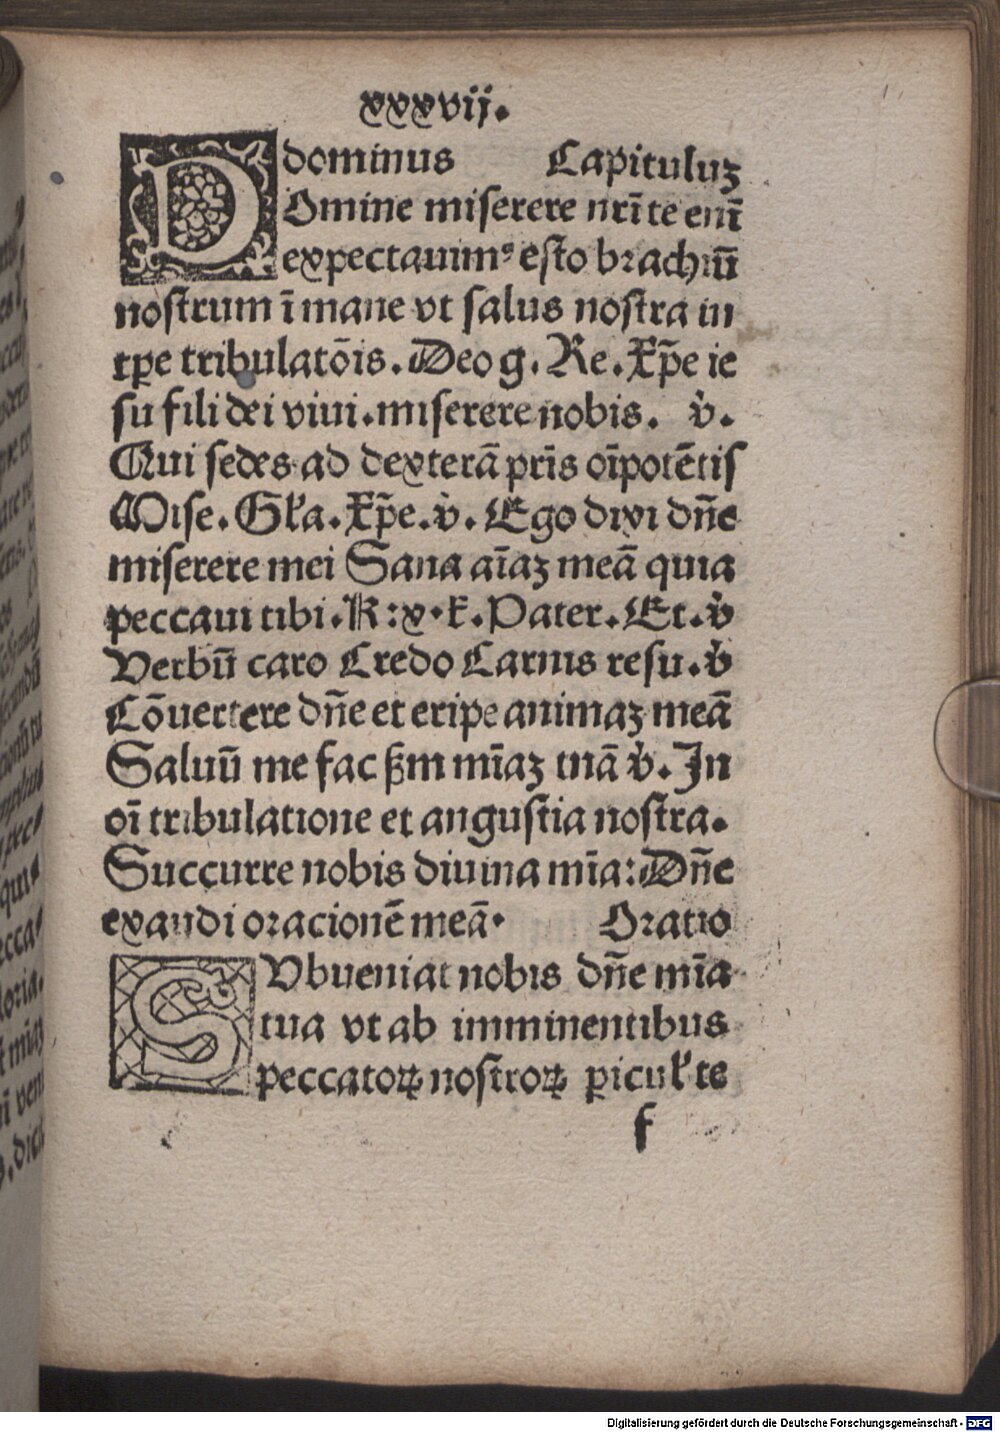 xxxvij.
dominus Capituluꝫ
DOmine miserere nr̄i te eni̅
expectauimꝰ esto brachiu̅
nostrum i̅ mane vt salus nostra in
tp̄e tribulato̅is. Deo g. Re. Xp̄e ie
su fili dei viui. miserere nobis. v̇.
Qui sedes ad dextera̅ pr̄is oi̅pote̅tis
Mise. Gl̓a. Xp̄e. v̇. Ego dixi dn̄e
miserere mei Sana ai̅aꝫ mea̅ quia
peccaui tibi. K:x.k̓. Pater. Et. v̇
Verbu̅ caro Credo Carnis resu. v̇
Co̅uertere dn̄e et eripe animaꝫ mea̅
Saluu̅ me fac ẞm mi̅aꝫ tua̅ v̇. In
oi̅ tribulatione et angustia nostra.
Succurre nobis diuina mi̅a: Dn̄e
exaudi oracione̅ mea̅. Oratio
SVbueniat nobis dn̄e mi̅a
tua vt ab imminentibus
peccatoꝝ nostroꝝ ꝑicul̓ te
f
Digitalisierung gefördert durch die Deutsche Forschungsgemeinschaft - DFG